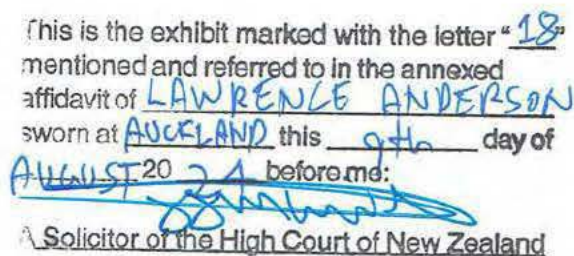 This is the exhibit marked with the letter "18"
mentioned and referred to in the annexed
affidavit of LAWRENCE ANDERSON
sworn at AUCKLAND this 9th day of
AUGUST 20 24 before me:
A Solicitor of the High Court of New Zealand